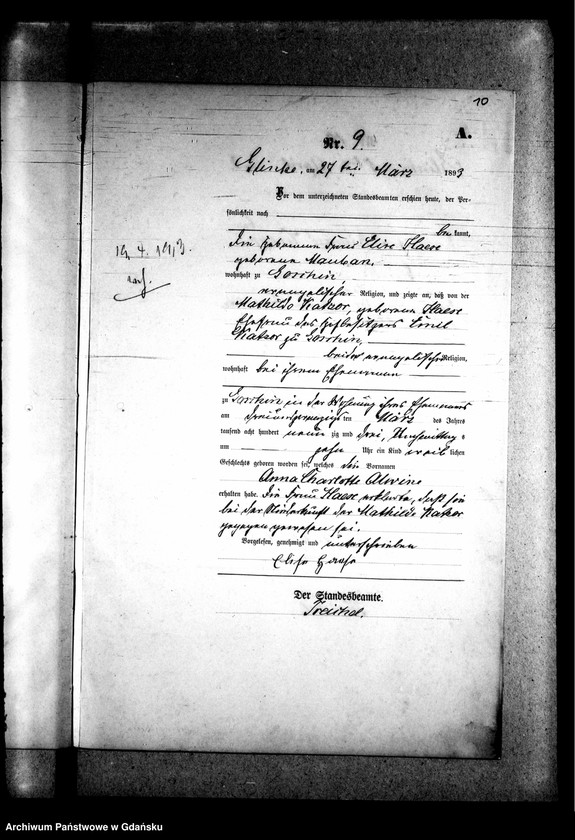 10
A.
Nr. 9.
am 27 ten März 1893
Vor dem unterzeichneten Standesbeamten erschien heute, der Per-
sönlichkeit nach
be kannt,
die Hebamme Frau Elise Haase
geborene
wohnhaft zu Gorschin
evangelischer Religion, und zeigte an, daß von der
Mathilde Katzor, geborenen Haase
Ehefrau des Hofbesitzers Emil
Katzor zu Gorschin,
beide evangelischer Religion,
wohnhaft bei ihrem Ehemann
zu Gorschin in der Wohnung ihres Ehemannes
am dreiundzwanzig ten März des Jahres
tausend acht hundert neun zig und drei, Vormittags
um zehn Uhr ein Kind weib lichen
Geschlechts geboren worden sei, welches die Vornamen
Anna Charlotte Alwine
erhalten habe. Die Frau Haase erklärte, daß sie
bei der Niederkunft der Mathilde Katzor
zugegen gewesen sei.
Vorgelesen, genehmigt und unterschrieben
Elise Haase
Der Standesbeamte.
Treichel.
Archiwum Państwowe w Gdańsku